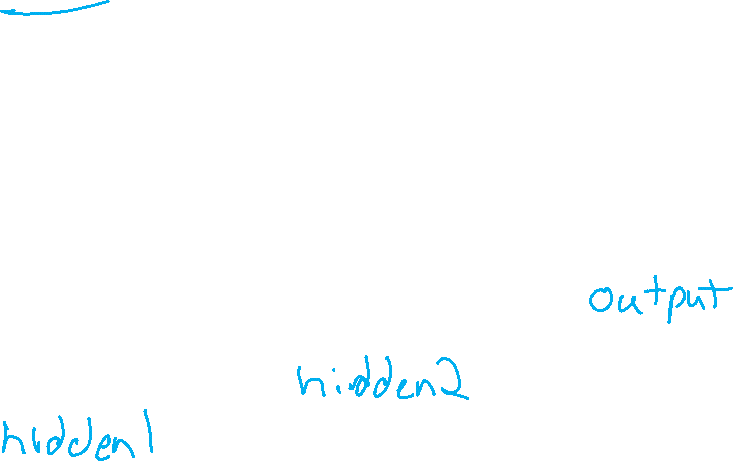 output
hidden2
hidden1